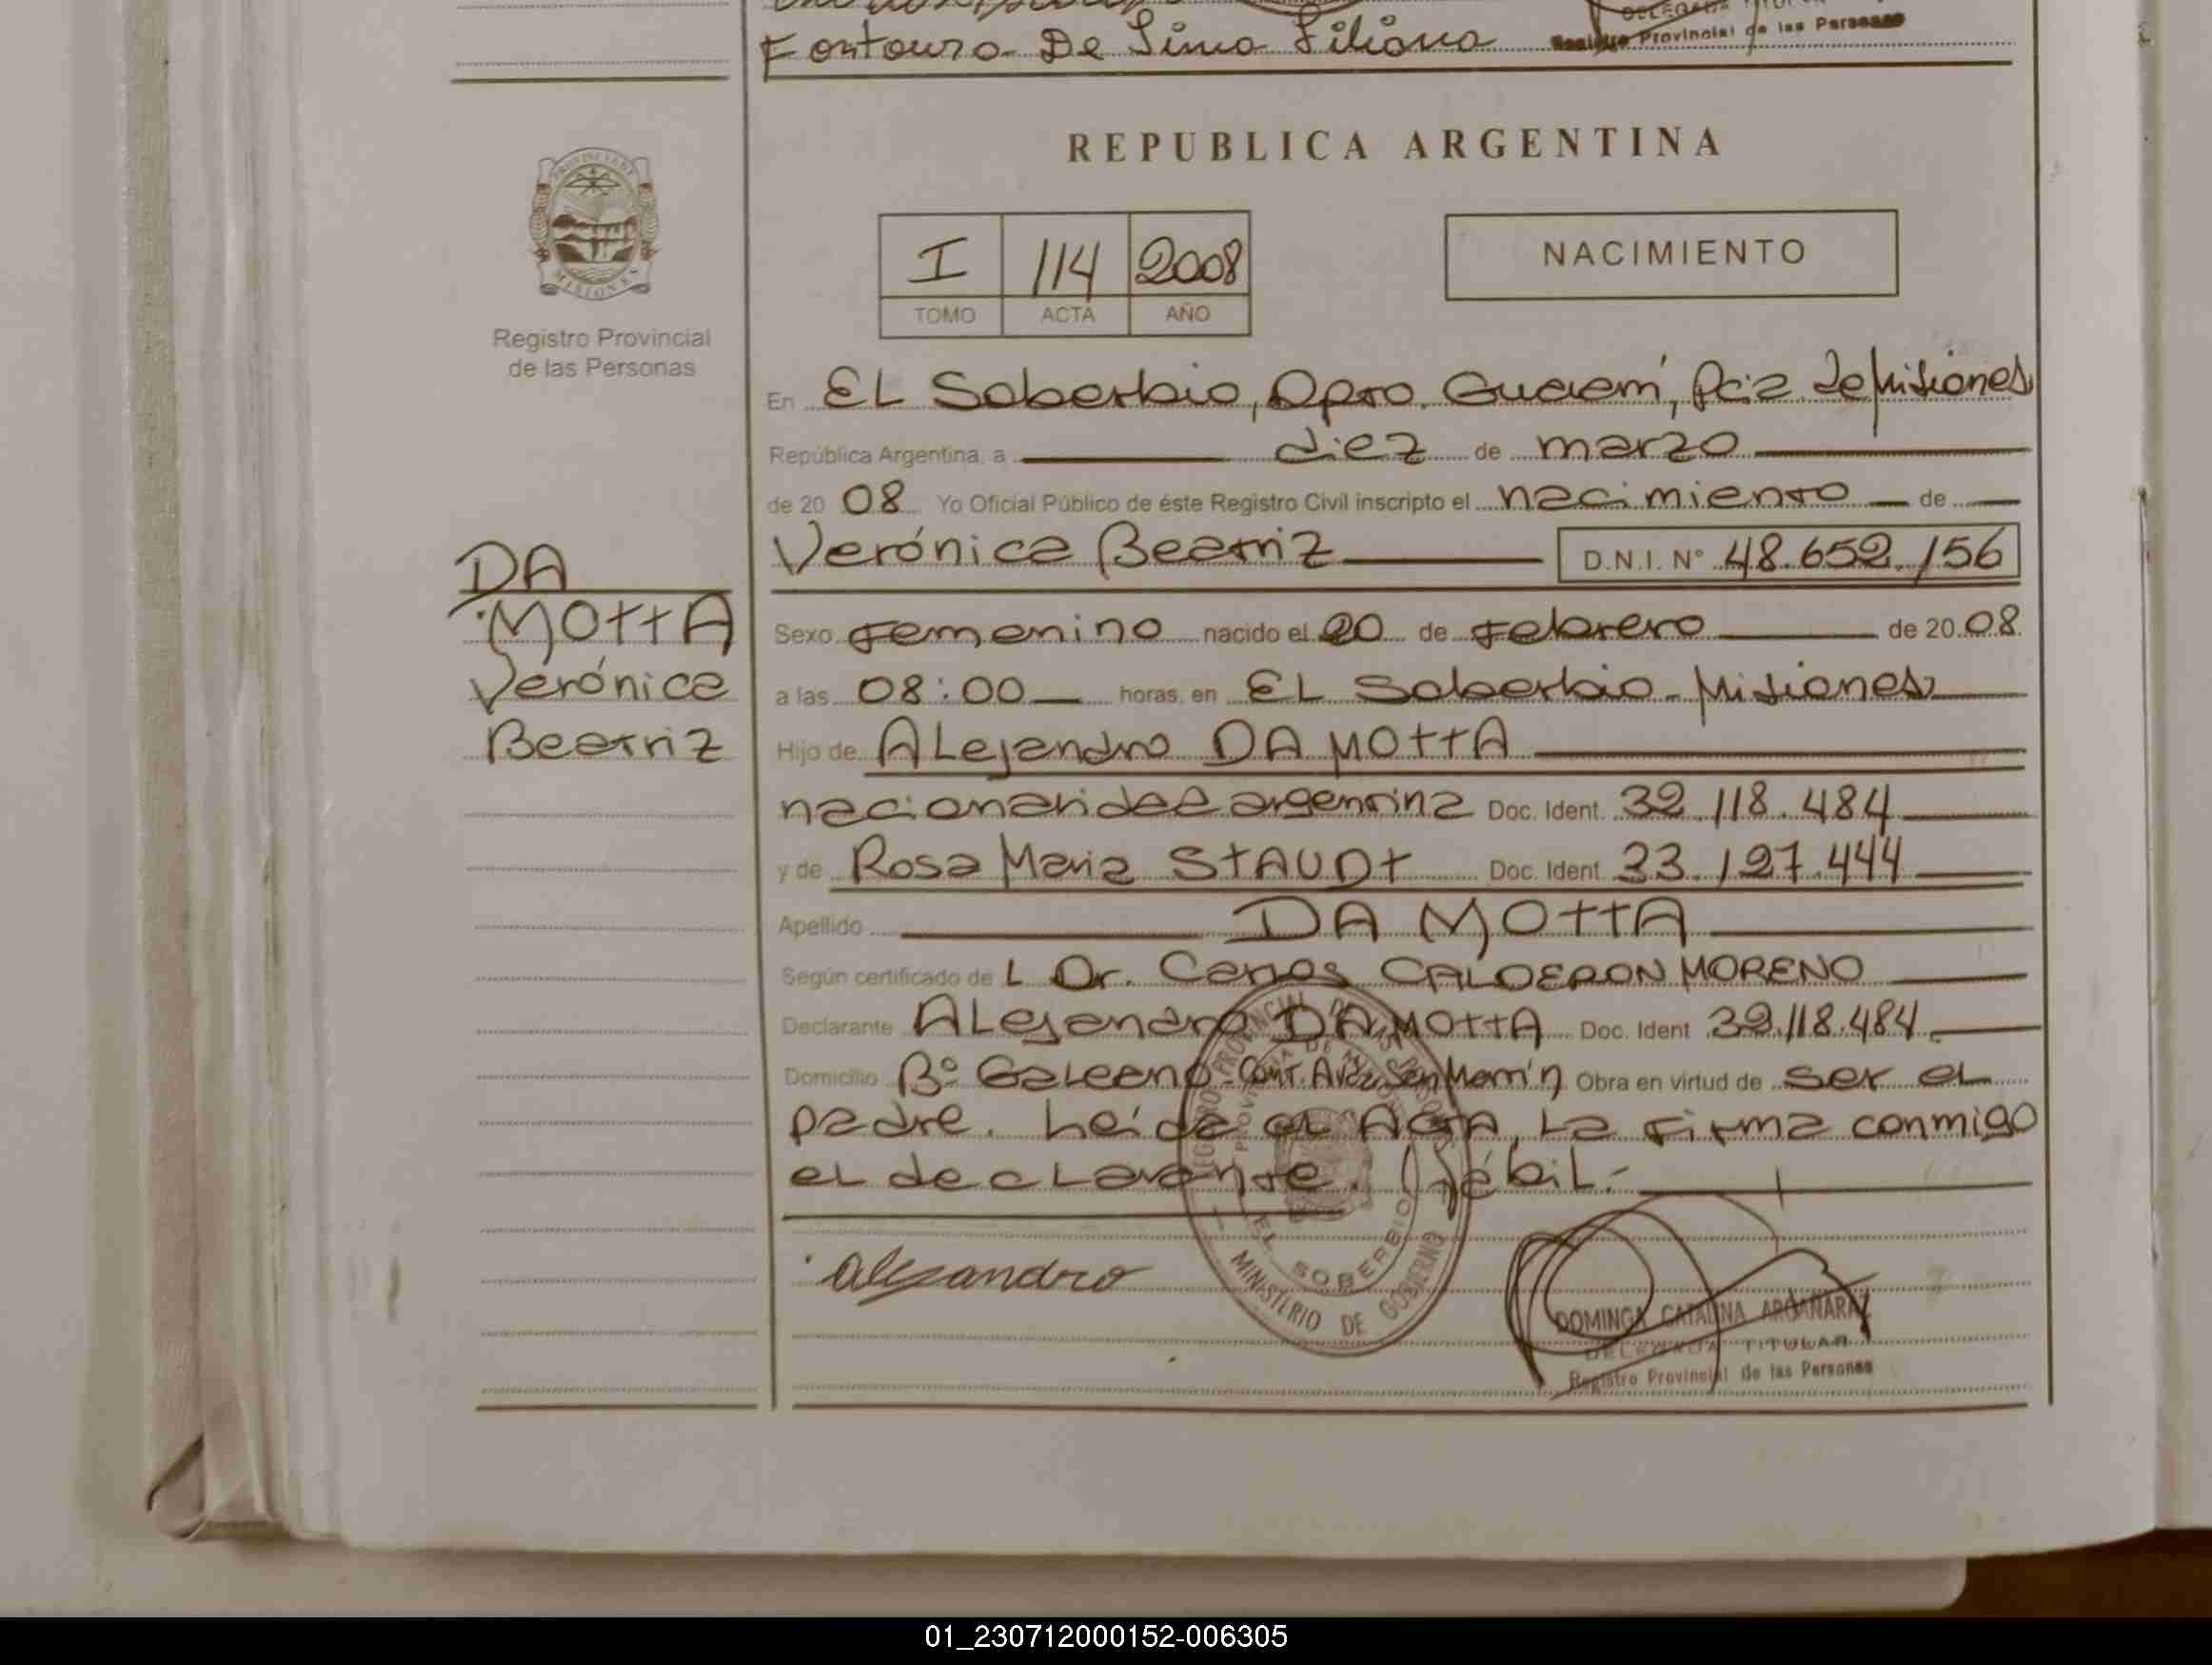 Fontoura De Lima Liliana
Registro Provincial de las Personas
REPUBLICA ARGENTINA
I 114 2008
TOMO ACTA AÑO
NACIMIENTO
MISIONES
Registro Provincial
de las Personas
En EL Soberbio, Dpto. Guaraní, Pcia de Misiones
República Argentina, a diez de marzo
de 20 08 Yo Oficial Público de éste Registro Civil inscripto el nacimiento de
Verónica Beatriz D.N.I. Nº 48.652.156
DA
MOttA
Verónica
Beatriz
Sexo Femenino nacido el 20 de Febrero de 20 08
a las 08:00 horas, en EL Soberbio - Misiones
Hijo de ALejandro DA MOttA
nacionalidad argentina Doc. Ident. 32.118.484
y de Rosa Maria StAUDt Doc. Ident. 33.127.444
Apellido DA MOttA
Según certificado de L Dr. Carlos CALDERON MORENO
Declarante ALejandro DA MOttA Doc. Ident 32.118.484
Domicilio Bº Galeano - Cont. Avda San Martín Obra en virtud de ser el
padre. Leída el ActA, La Firma conmigo
el decLarante.
REGISTRO PROVINCIAL DE LAS PERSONAS
PROVINCIA DE MISIONES
EL SOBERBIO
MINISTERIO DE GOBIERNO
Alejandro
DOMINGA CATALINA ARGAÑARAZ
DELEGADA TITULAR
Registro Provincial de las Personas
01_230712000152-006305